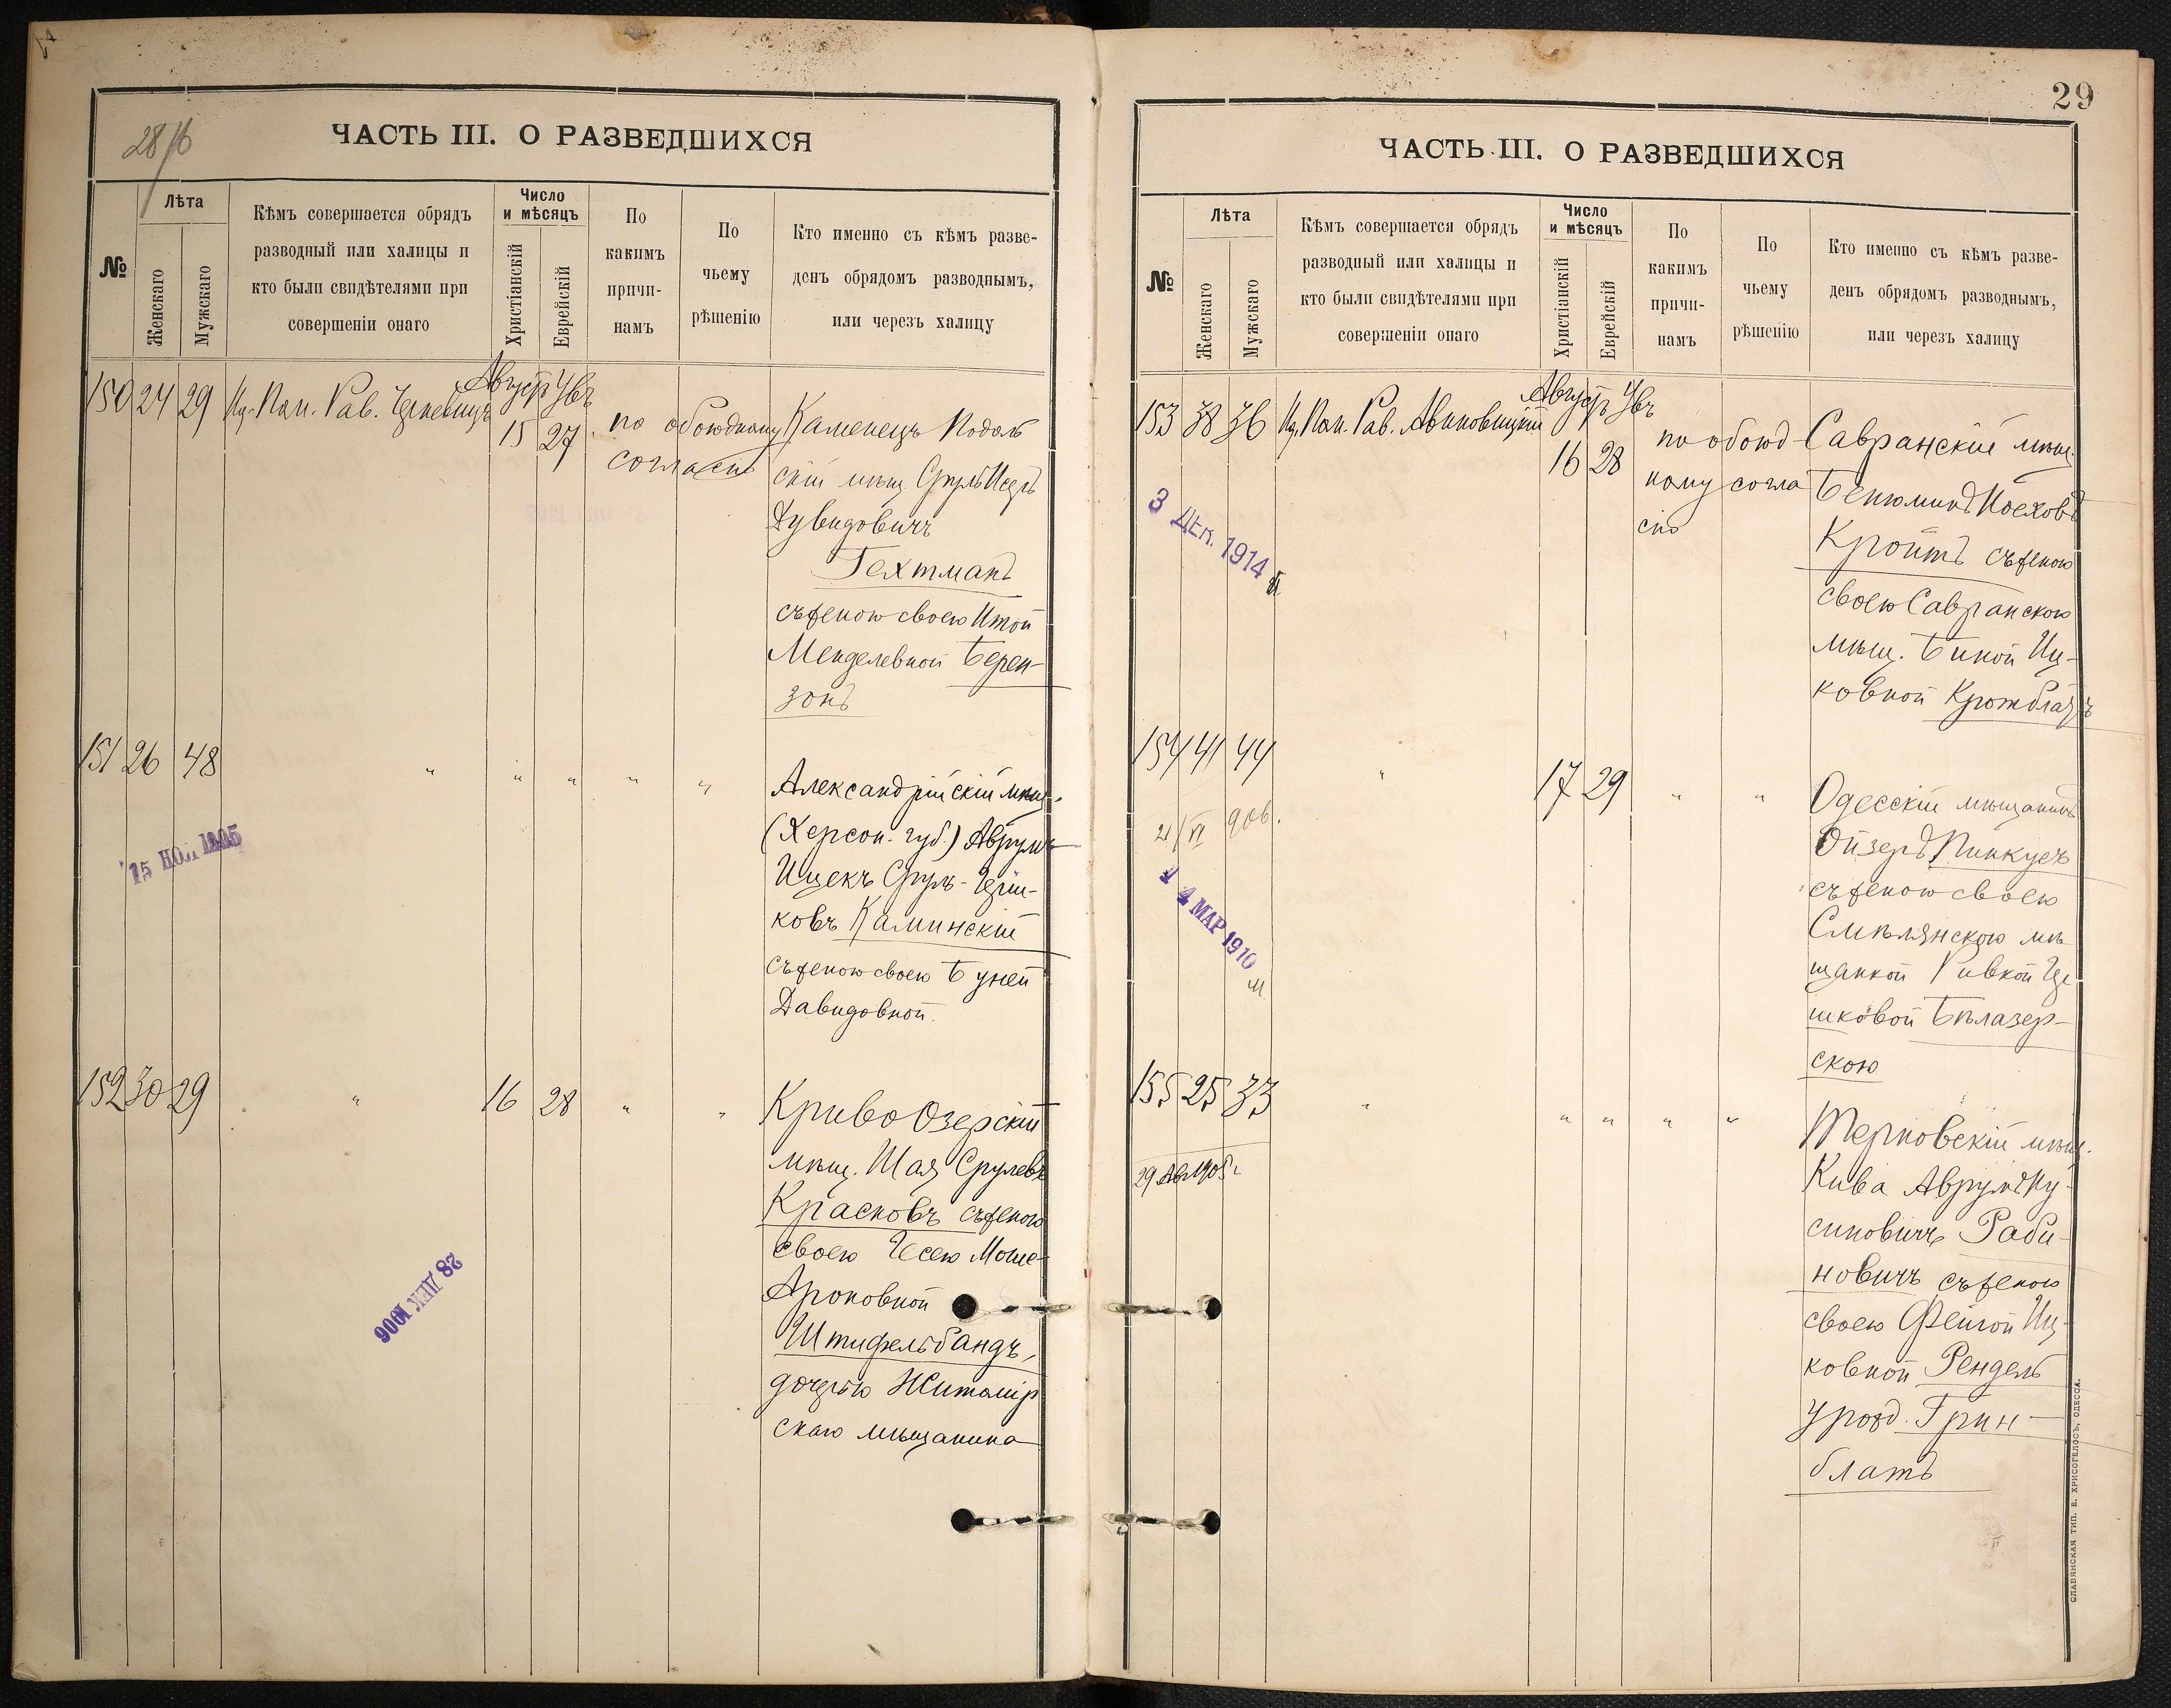 28/б
ЧАСТЬ III. О РАЗВЕДШИХСЯ
№
Лѣта
Женскаго
Мужскаго
Кѣмъ совершается обрядъ
разводный или халицы и
кто были свидѣтелями при
совершеніи онаго
Число
и мѣсяцъ
Христіанскій
Еврейскій
По
какимъ
причи-
намъ
По
чьему
рѣшенію
Кто именно съ кѣмъ разве-
денъ обрядомъ разводнымъ,
или черезъ халицу
150 24 29
Августъ
15 27
по обоюдному
согласію
Каменецъ Подоль
скій мѣщ Сруль
Дувидовичъ
Гехтманъ
съ женою своею Итой
Менделевной Берен-
зонъ
151 26 48 " " " " "
Александрійскій мѣщ.
(Херсон. губ.) Аврумъ
Ицекъ Сруль-Герш-
ковъ Каминскій
съ женою своею Буней
Давидовной.
15 НОЯ 1905
152 30 29 " 16 28 " "
Криво Озерскій
мѣщ. Шая Срулевъ
Красновъ съ женою
своею Есею Моше-
Ароновной
Штифельбандъ,
дочерью Житомір
скаго мѣщанина
28 ДЕК 1906
29
ЧАСТЬ III. О РАЗВЕДШИХСЯ
№
Лѣта
Женскаго
Мужскаго
Кѣмъ совершается обрядъ
разводный или халицы и
кто были свидѣтелями при
совершеніи онаго
Число
и мѣсяцъ
Христіанскій
Еврейскій
По
какимъ
причи-
намъ
По
чьему
рѣшенію
Кто именно съ кѣмъ разве-
денъ обрядомъ разводнымъ,
или черезъ халицу
153 38 36
Августъ
16 28
по обоюд
ному согла
сію
Савранскій мѣщ.
Бенюминъ Иосховъ
Кройтъ съ женою
своею Савранскою
мѣщ. Бикой Иц-
ковной
3 ДЕК. 1914
154 41 44 " 17 29 " "
Одесскій мѣщанинъ
Ойзеръ Пинкусъ
съ женою своею
Смѣлянскою мѣ
щанкой Ривкой Гер
шковой Бѣлазер-
скою
21/VI дов.
14 МАР 1910
155 25 33 " " " " "
Терновскій мѣщ.
Кива Аврумъ Ну-
синовичъ Раби-
новичъ съ женою
своею Фейгой Иц-
ковной Рендель
урожд. Грин-
блатъ
29 Авг 1905 г
СЛАВЯНСКАЯ ТИП. Е. ХРИСОГЕЛОСЪ, ОДЕССА.